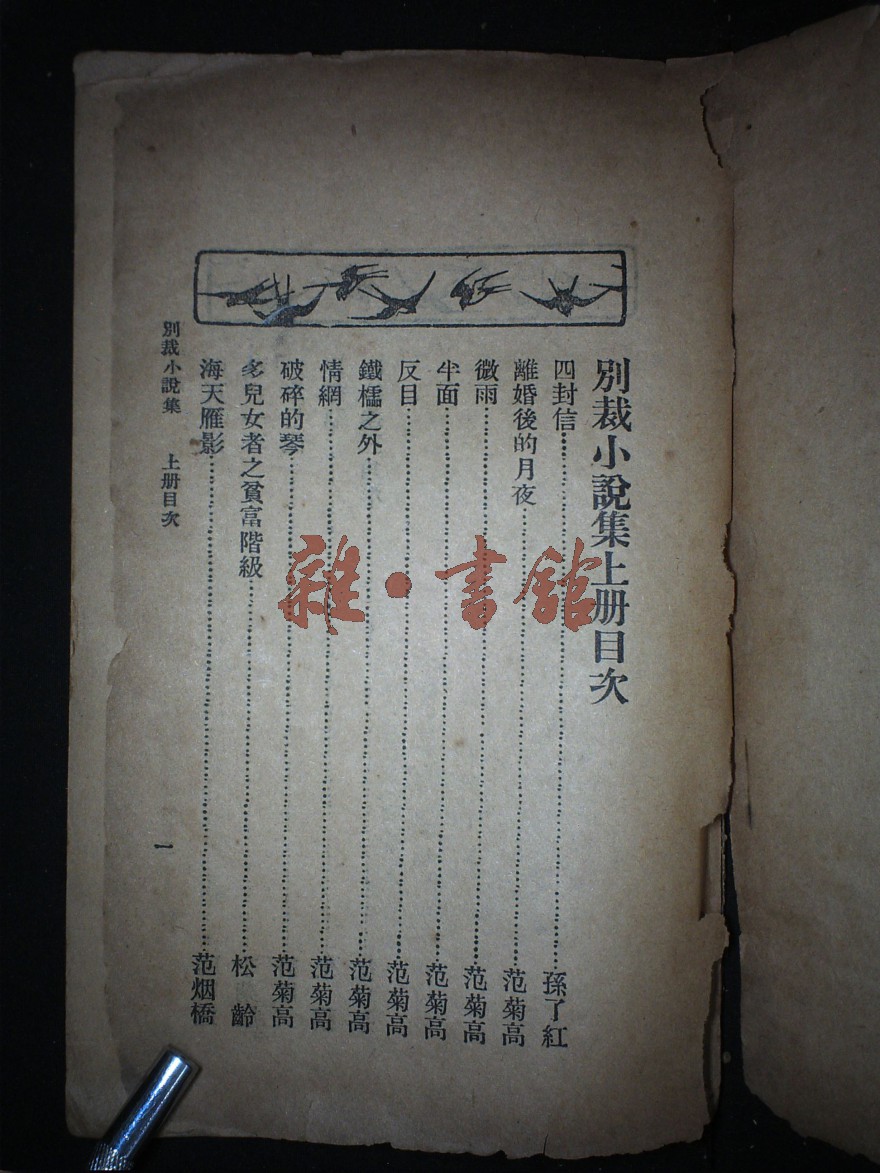 別裁小說集上册目次
四封信……孫了紅
離婚後的月夜……范菊高
微雨……范菊高
半面……范菊高
反目……范菊高
鐵檽之外……范菊高
情網……范菊高
破碎的琴……范菊高
多兒女者之貧富階級……松齡
海天雁影……范烟橋
別裁小說集 上册目次
一
雜·書館